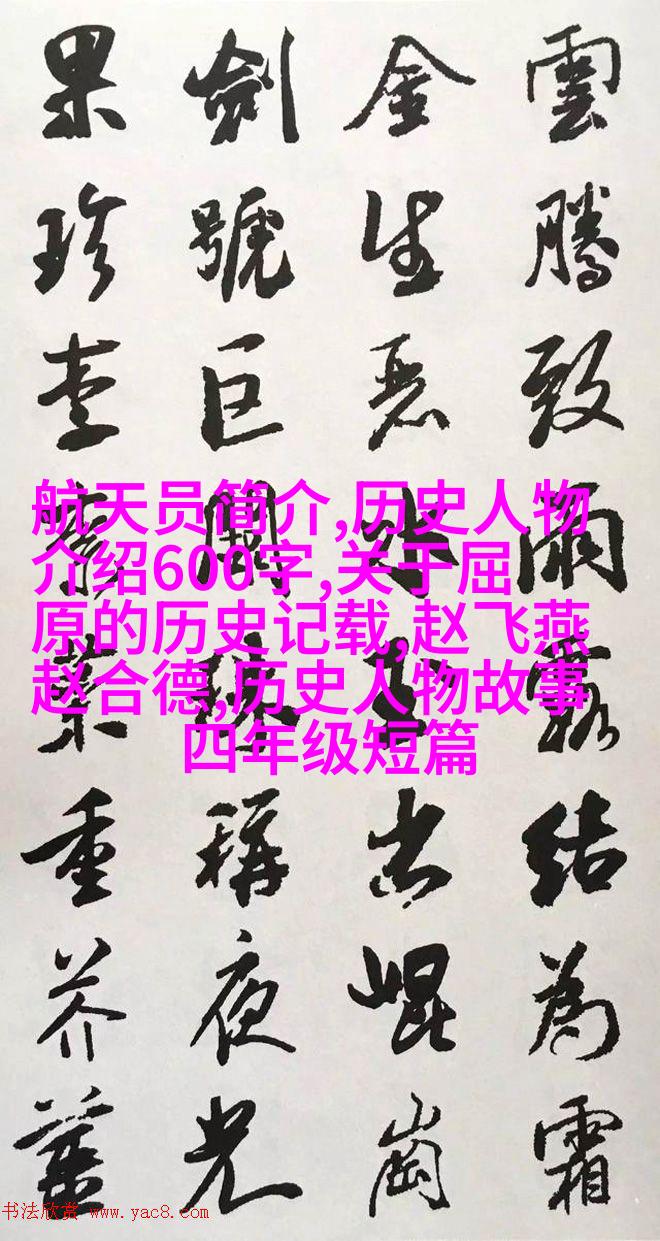 雲騰致雨露結為霜
金生麗水玉出崐崗
劍號巨闕珠稱夜光
果珍李柰菜重芥薑
航天员简介,历史人物
介绍600字,关于屈
原的历史记载,赵飞燕
赵合德,历史人物故事
四年级短篇
书法欣赏 www.yac8.com